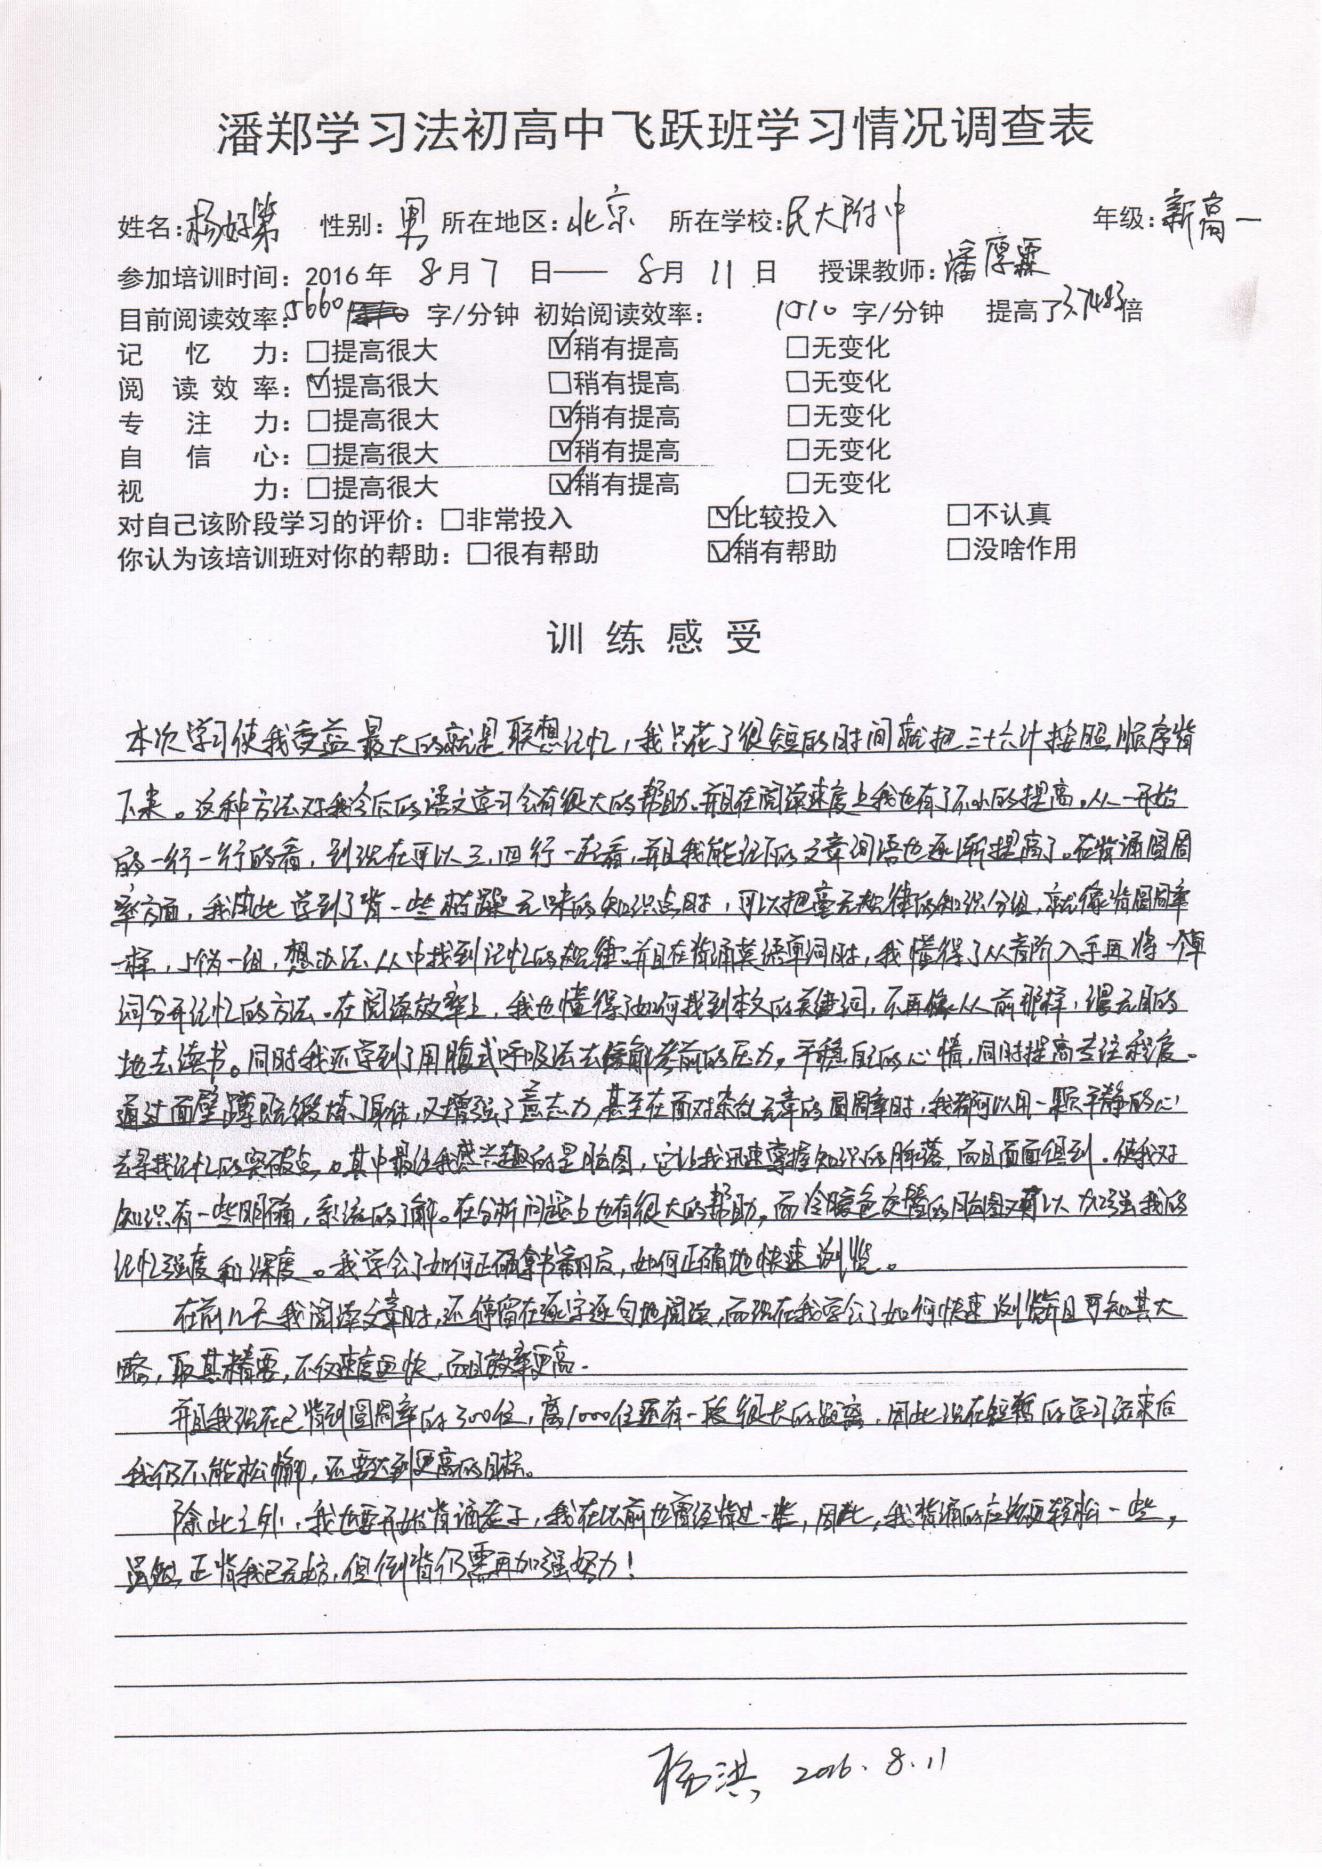 潘郑学习法初高中飞跃班学习情况调查表
姓名:杨好第 性别:男 所在地区:北京 所在学校:民大附中 年级:新高一
参加培训时间:2016年 8月7日——8月11日 授课教师:潘厚霖
目前阅读效率:5660 字/分钟 初始阅读效率: 1510 字/分钟 提高了3.7483倍
记忆力:□提高很大 ☑稍有提高 □无变化
阅读效率:☑提高很大 □稍有提高 □无变化
专注力:□提高很大 ☑稍有提高 □无变化
自信心:□提高很大 ☑稍有提高 □无变化
视力:□提高很大 ☑稍有提高 □无变化
对自己该阶段学习的评价:□非常投入 ☑比较投入 □不认真
你认为该培训班对你的帮助:□很有帮助 ☑稍有帮助 □没啥作用
训练感受
本次学习使我受益最大的就是联想记忆,我只花了很短的时间就把三十六计按照顺序背
下来。这种方法对我今后的语文学习会有很大的帮助。并且在阅读速度上我也有了不小的提高。从一开始
的一行一行的看,到现在可以三,四行一起看,并且我能记下的文章词语也逐渐提高了。在背诵圆周
率方面,我由此学到了背一些枯躁无味的知识点时,可以把毫无规律的知识分组,就像背圆周率
一样,一组,想办法从中找到记忆的规律。并且在背诵英语单词时,我懂得了从音阶入手再将一个单
词分开记忆的方法。在阅读效率上,我也懂得了如何找到本文的关键词,不再像从前那样,漫无目的
地去读书。同时我还学到了用腹式呼吸法去缓解考前的压力,平稳自己的心情,同时提高专注程度。
通过面壁蹲既锻炼了身体,又增强了意志力,甚至在面对杂乱无章的圆周率时,我都可以用一颗平静的心
去寻找记忆的突破点。其中最令我感兴趣的是脑图,它让我迅速掌握知识的脉络,而且面面俱到。使我对
知识有一些明确,系统的了解。在分析问题上也有很大的帮助,而冷暖色交替的脑图又可以加强我的
记忆强度和深度。我学会了如何正确拿书翻页,如何正确地快速浏览。
在前几天我阅读文章时,还停留在逐字逐句地阅读,而现在我学会了如何快速浏览并且要知其大
略,取其精要,不仅速度更快,而且效率更高.
并且我现在已背到圆周率的300位,离1000位还有一段很大的距离,因此现在短暂的学习结束后
我仍不能松懈,还要达到更高的目标。
除此之外,我也要开始背诵老子,我在以前也曾经背过一些,因此,我背诵的应该更轻松一些,
虽然,正背我已无妨,但倒背仍需再加强努力!
杨洪 2016.8.11